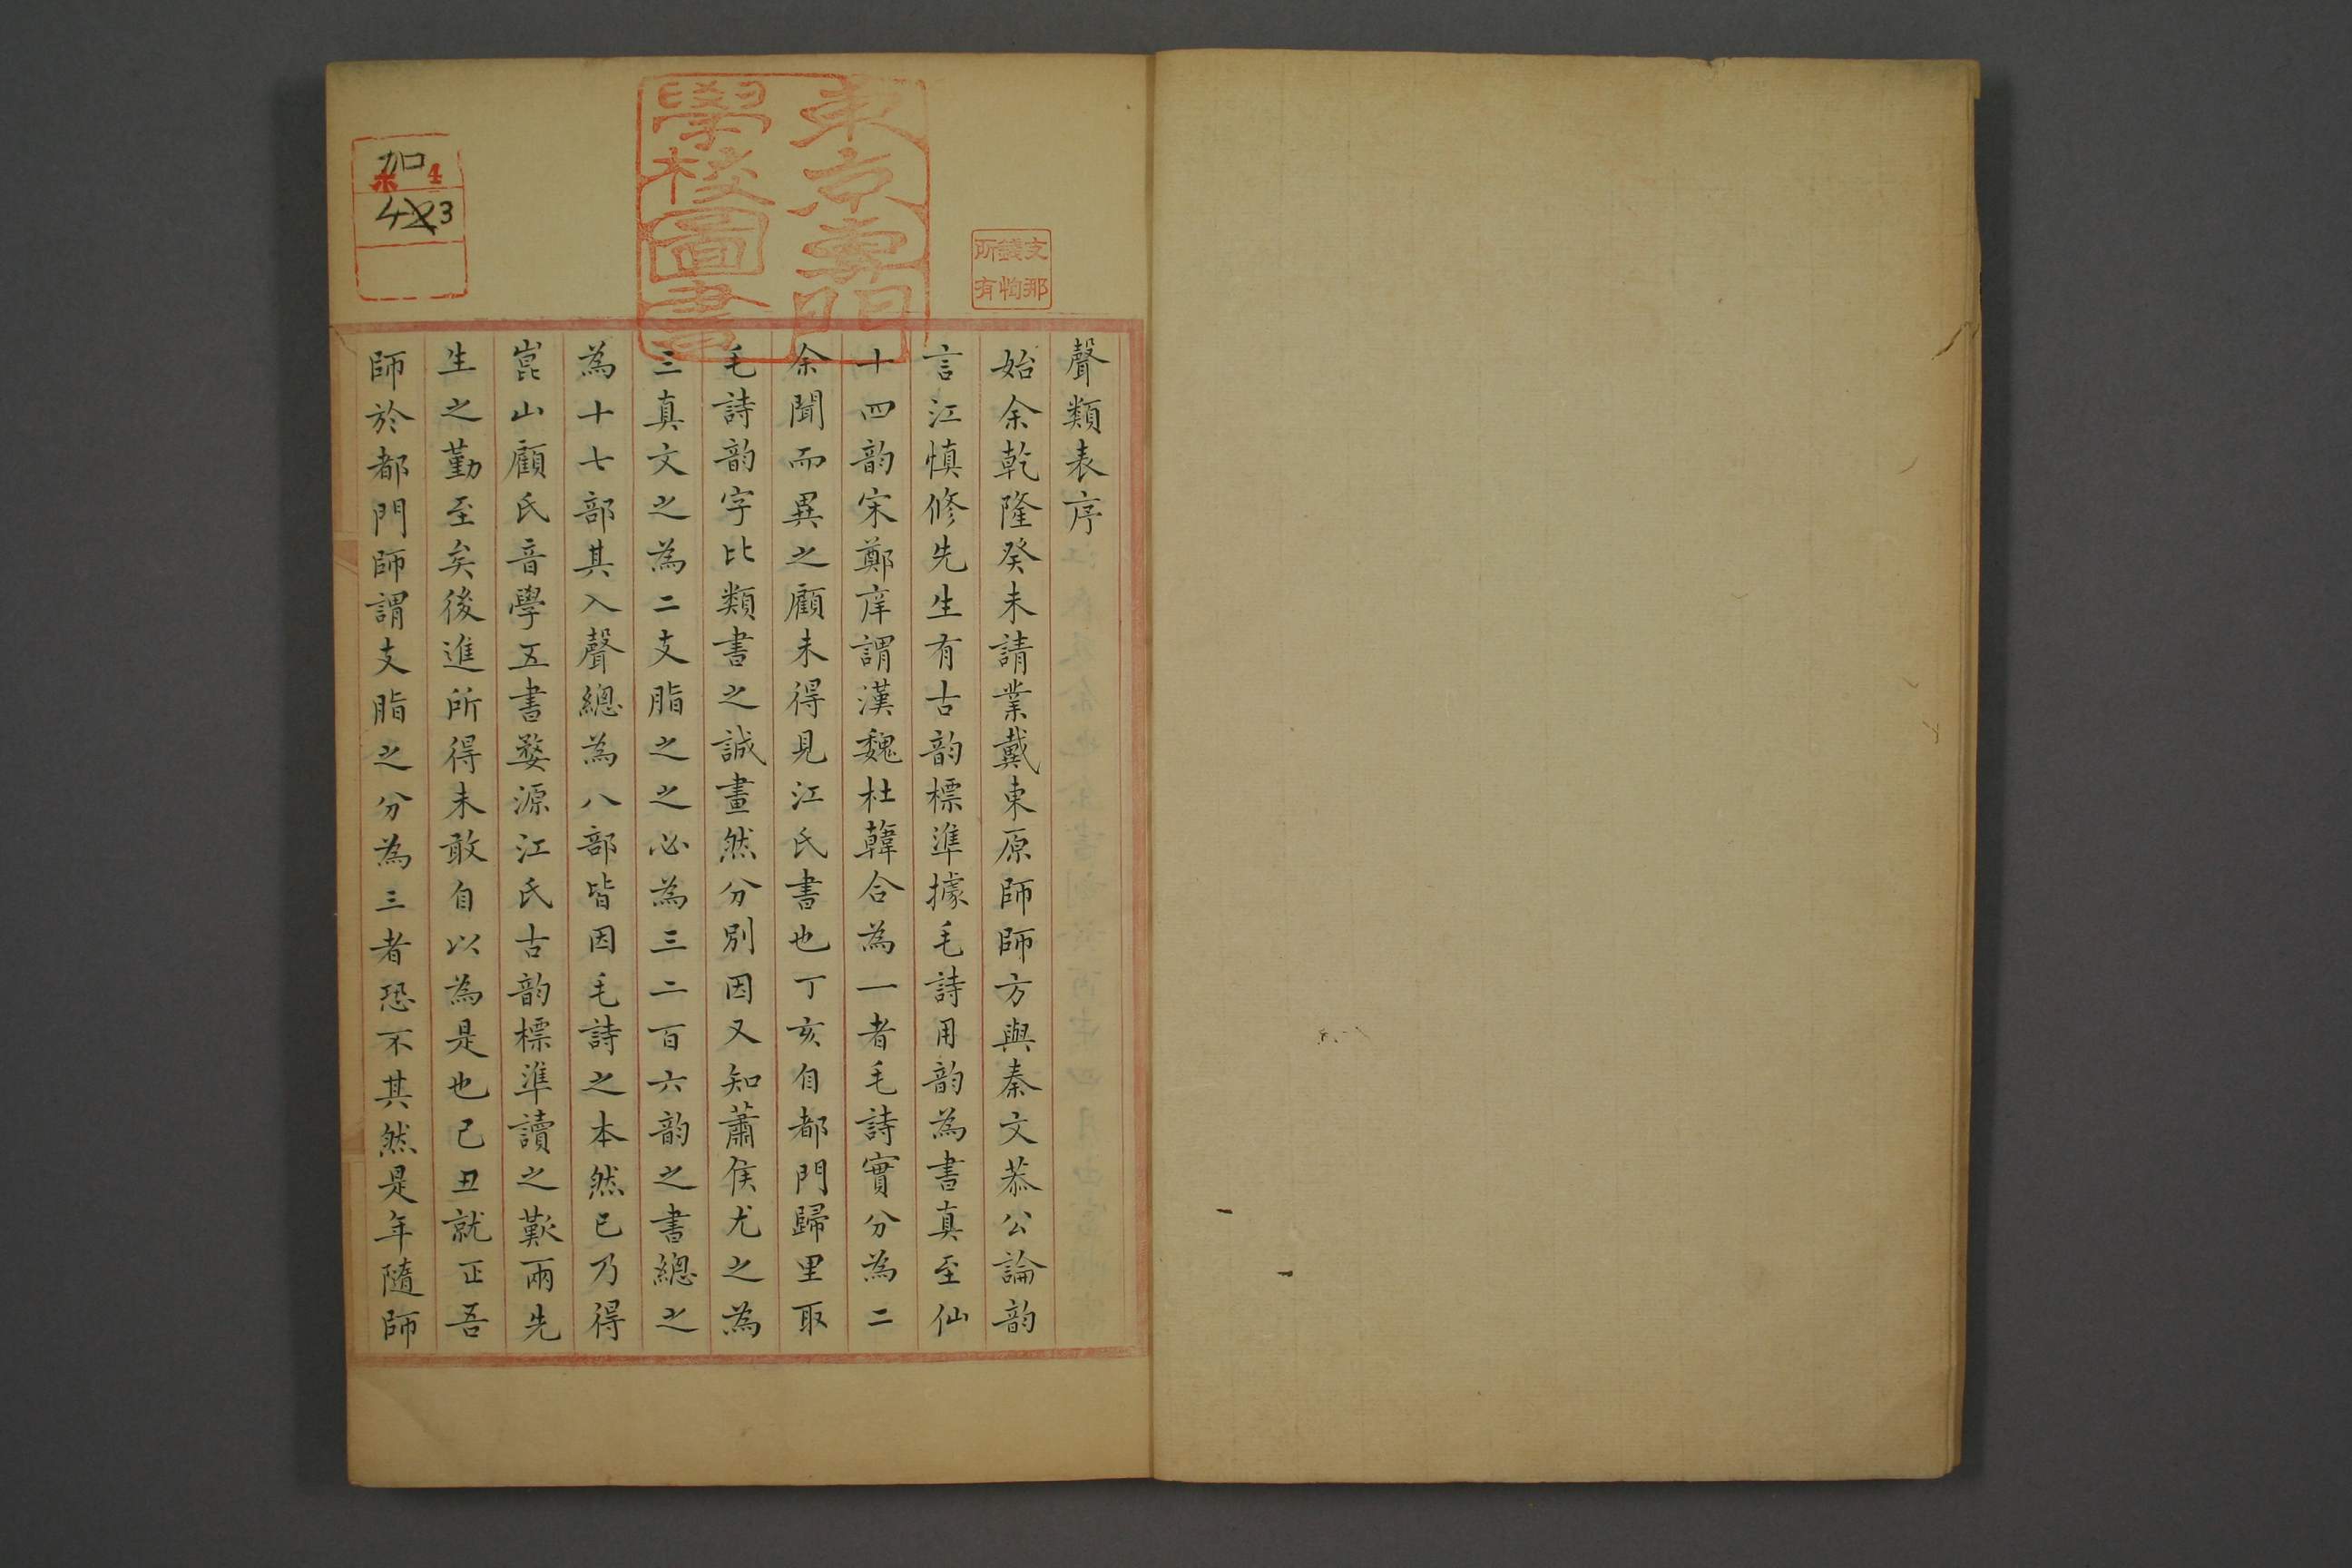 聲類表序
始余乾隆癸未請業戴東原師師方與秦文恭公論韵
言江慎修先生有古韵標準據毛詩用韵為書真至仙
十四韵宋鄭庠謂漢魏杜韓合為一者毛詩實分為二
余聞而異之顧未得見江氏書也丁亥自都門歸里取
毛詩韵字比類書之誠畫然分別因又知蕭侯尤之為
三真文之為二支脂之之必為三二百六韵之書總之
為十七部其入聲總為八部皆因毛詩之本然已乃得
崑山顧氏音學五書婺源江氏古韵標準讀之歎兩先
生之勤至矣後進所得未敢自以為是也己丑就正吾
師於都門師謂支脂之分為三者恐不其然是年隨師
東京專門
學校圖書
支那
錢恂
所有
加 4
423